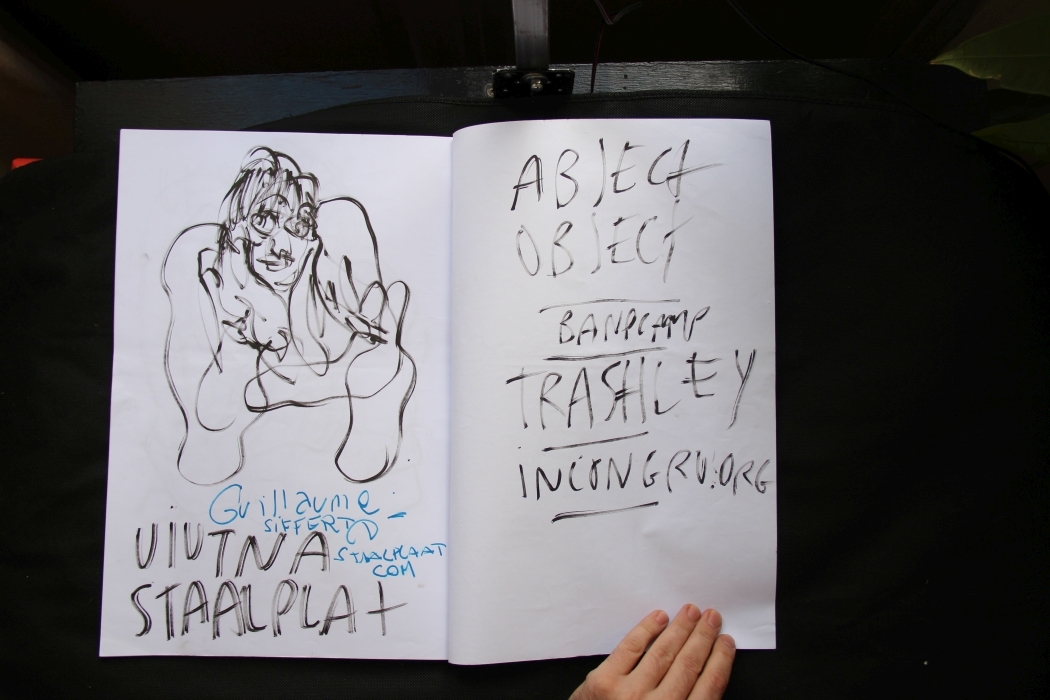 Guillaume
SIFFERT
UIUTNA
STAALPLAAT
COM
STAALPLAt
ABJECt
OBJECt
BANDCAMP
TRASHLEY
iNCONGRU.ORG